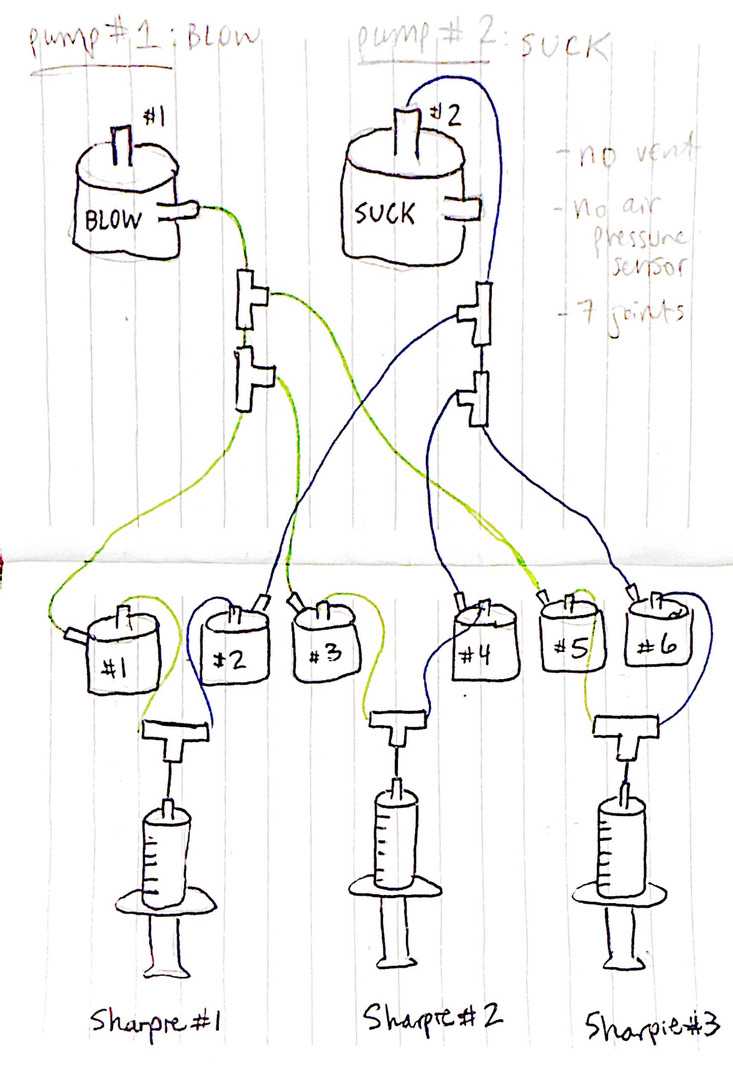 pump #1: BLOW
pump # 2: SUCK
#1
#2
BLOW
SUCK
- no vent
- no air
pressure
sensor
- 7 joints
#1
#2
#3
#4
#5
#6
Sharpie #1
Sharpie # 2
Sharpie #3